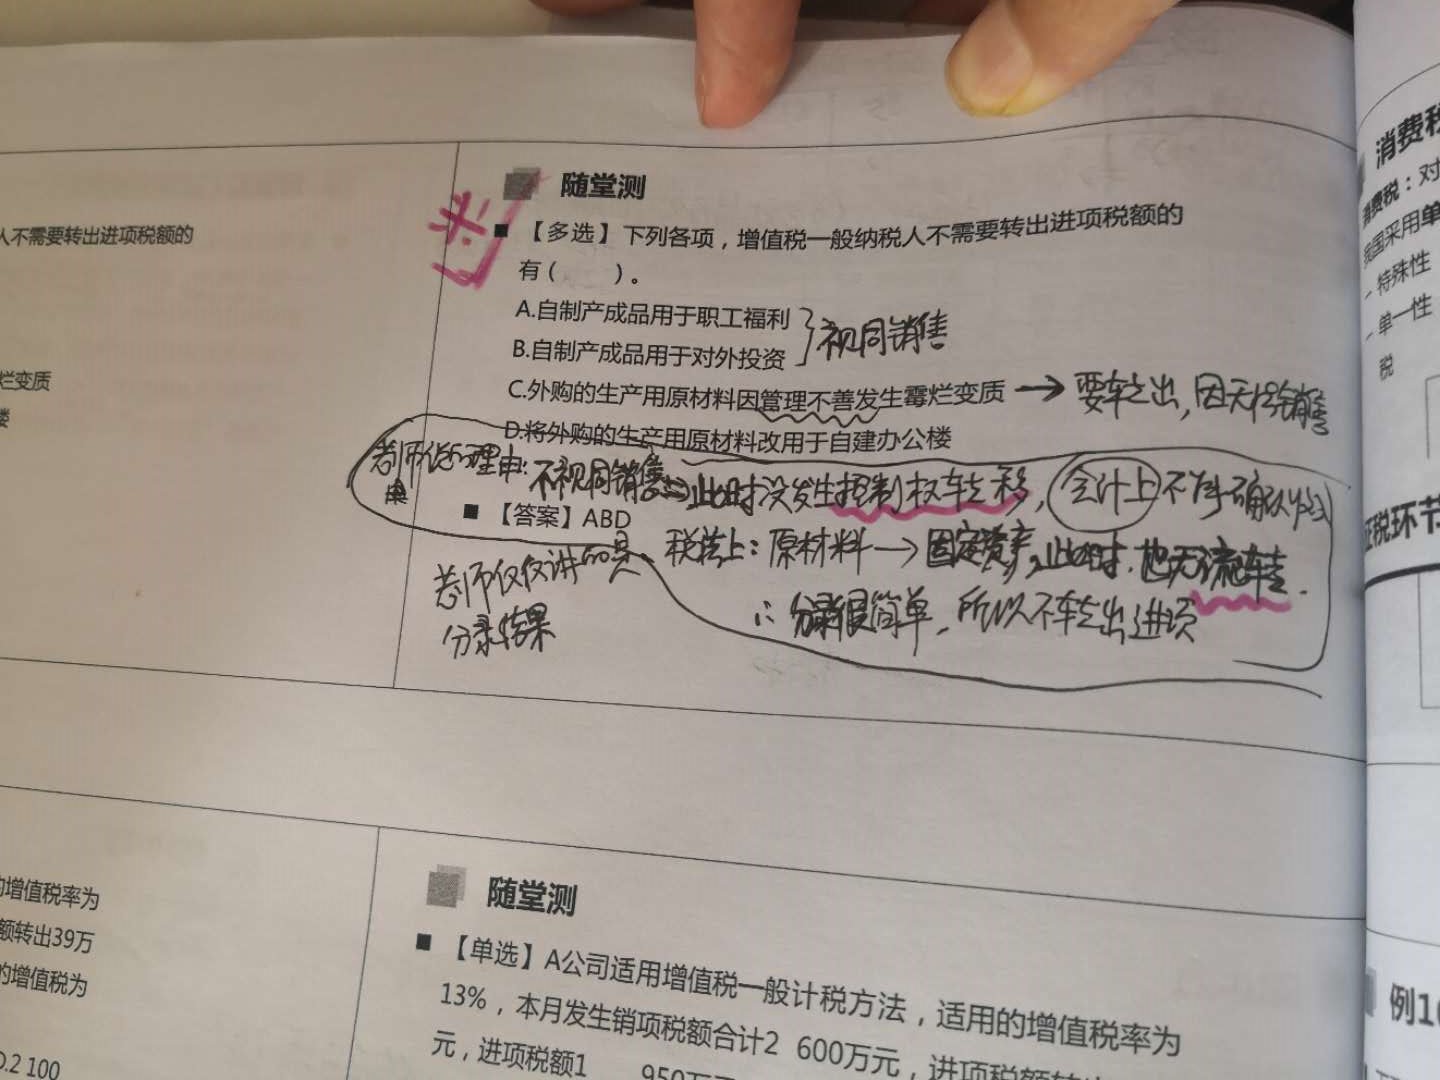 人不需要转出进项税额的
烂变质
楼
随堂测
【多选】下列各项，增值税一般纳税人不需要转出进项税额的
有（ ）。
A.自制产成品用于职工福利
B.自制产成品用于对外投资
视同销售
C.外购的生产用原材料因管理不善发生霉烂变质 → 要转出，因无法销售
D.将外购的生产用原材料改用于自建办公楼
理由：不视同销售 此时没发生控制权转移，会计上不确认收入
【答案】ABD
税法上：原材料→固定资产，此时，也无流转.
老师仅仅讲的是
分录结果
∵分录很简单，所以不转出进项
的增值税率为
额转出39万
的增值税为
0.2 100
随堂测
【单选】A公司适用增值税一般计税方法，适用的增值税率为
13%，本月发生销项税额合计2 600万元，进项税额转
元，进项税额1 950万
消费税
消费税：对
我国采用单
- 特殊性
- 单一性
税
征税环节
例10